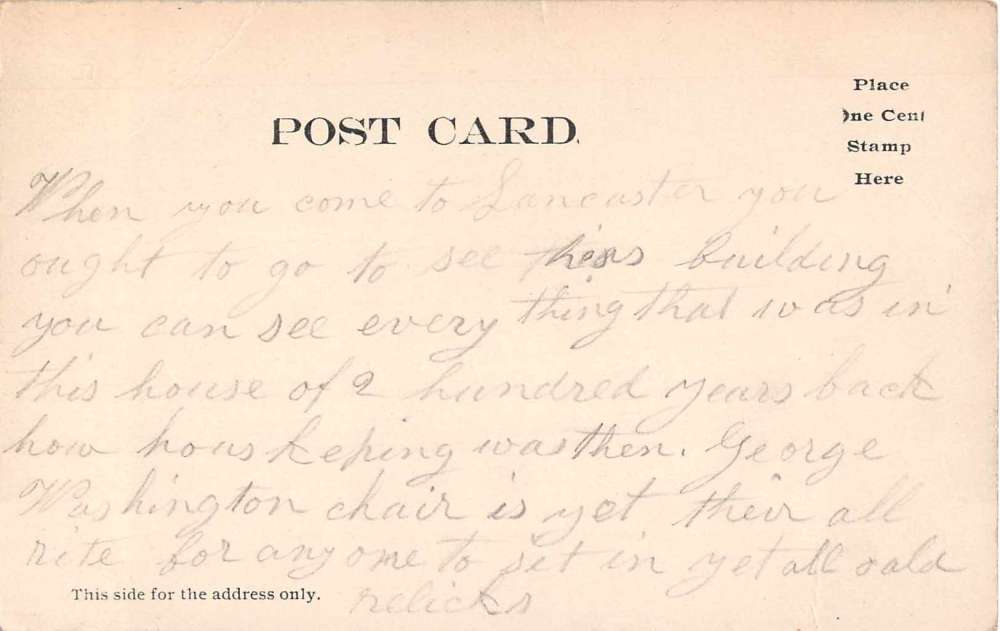 Place
One Cent
Stamp
Here
POST CARD.
When you come to Lancaster you
ought to go to see this building
you can see every thing that was in
this house of 2 hundred years back
how hous keping was then. George
Washington chair is yet their all
rite for any ome to sit in yet all oald
relicks
This side for the address only.